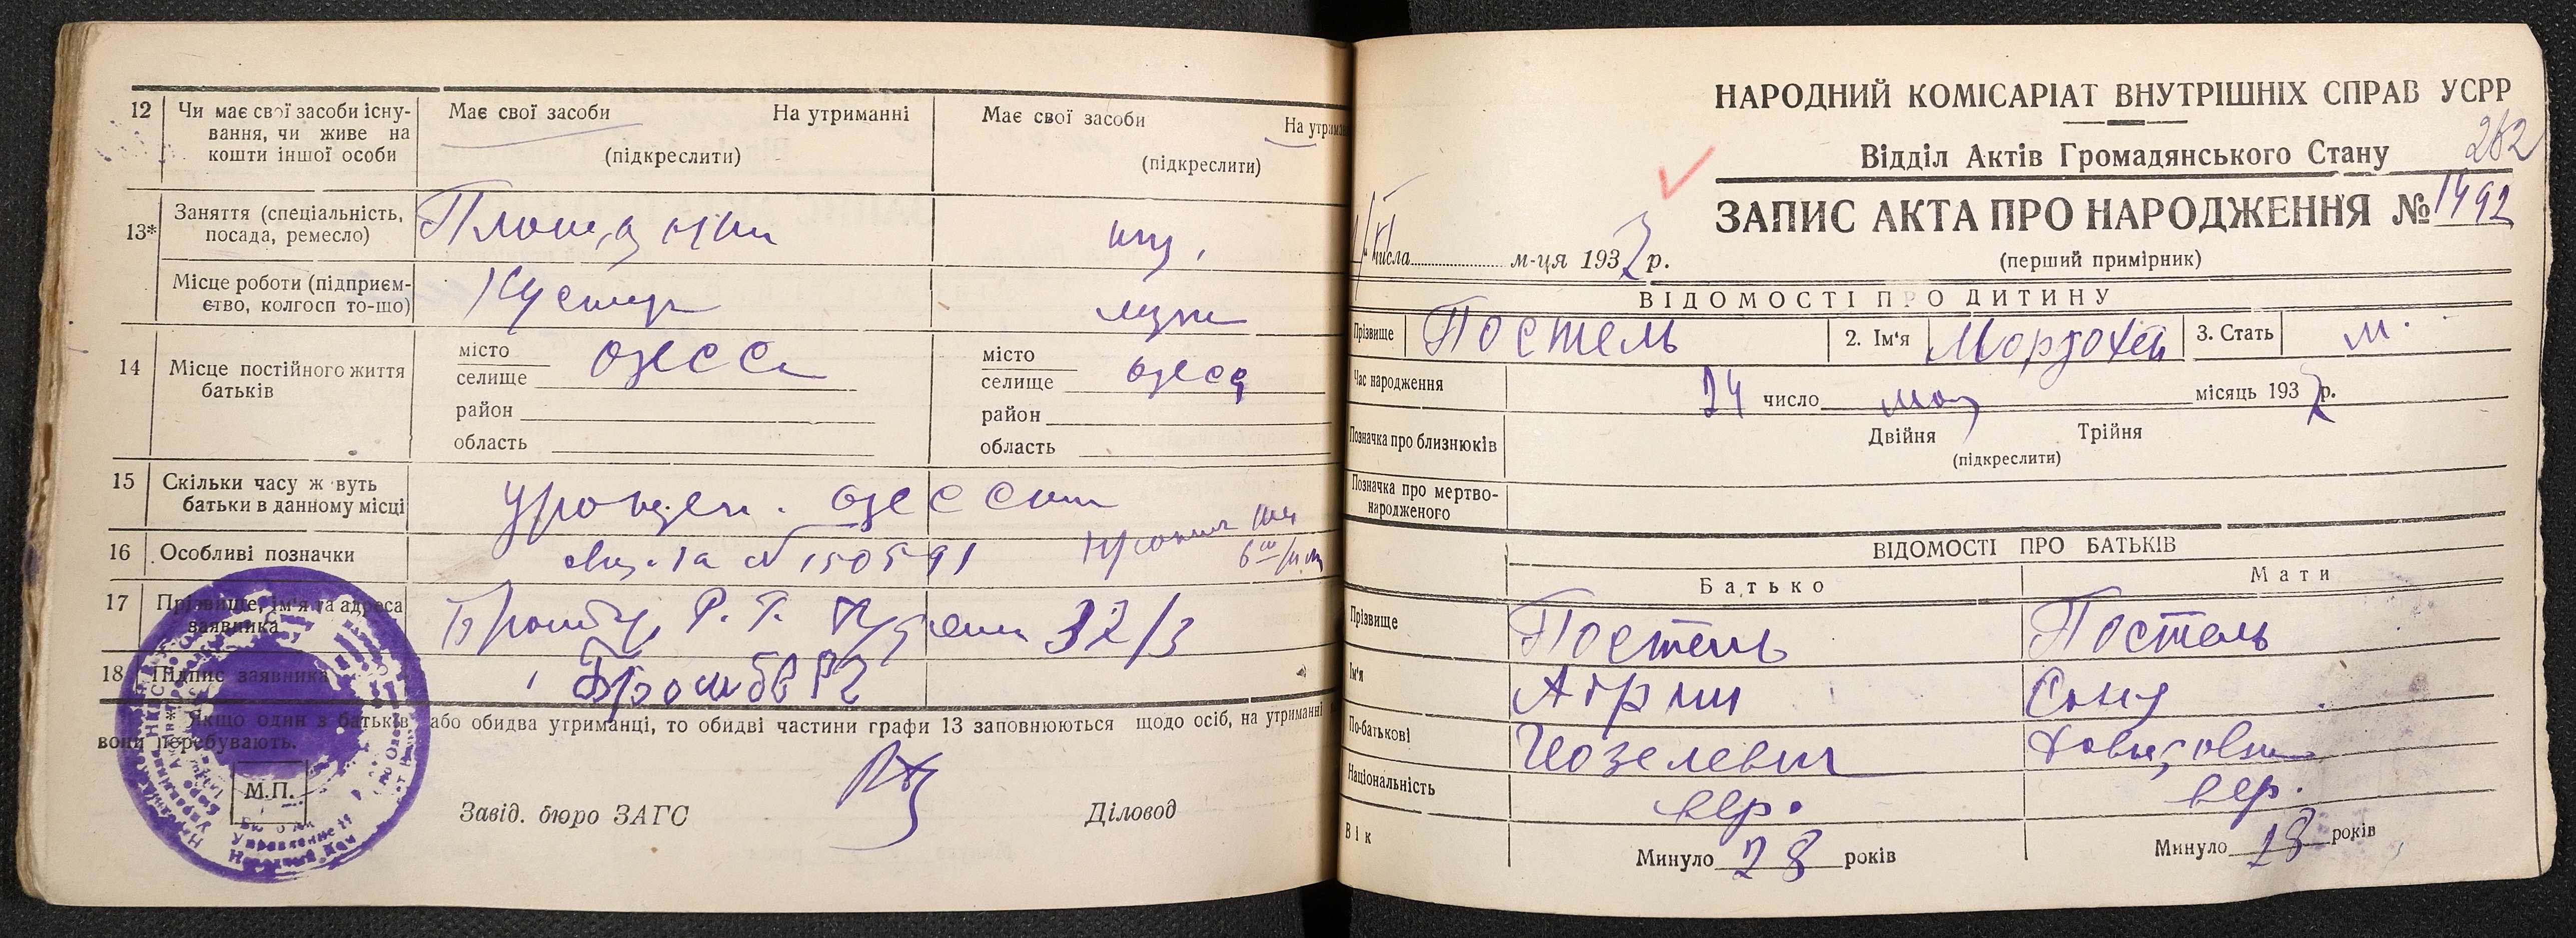 12 Чи має свої засоби існу-
вання, чи живе на
кошти іншої особи
Має свої засоби На утриманні
(підкреслити)
Має свої засоби
(підкреслити)
13* Заняття (спеціальність,
посада, ремесло)
Місце роботи (підприєм-
ство, колгосп то-що)
Кустарь
мужа
14 Місце постійного життя
батьків
місто Одесса
селище
район
область
місто Одесса
селище
район
область
15 Скільки часу живуть
батьки в данному місці
урожден. Одессит
16 Особливі позначки
№ 150591
17 Прізвище, ім'я та адреса
заявника
Р. Г. 32/3
18 Підпис заявника
* Якщо один з батьків або обидва утриманці, то обидві частини графи 13 заповнюються щодо осіб, на утриманні
вони перебувають.
М.П.
Завід. бюро ЗАГС
Діловод
НАРОДНИЙ КОМІСАРІАТ ВНУТРІШНІХ СПРАВ УСРР
262
Відділ Актів Громадянського Стану
ЗАПИС АКТА ПРО НАРОДЖЕННЯ № 1492
числа м-ця 1937 р.
(перший примірник)
ВІДОМОСТІ ПРО ДИТИНУ
Прізвище Постель 2. Ім'я Мордохей 3. Стать м.
Час народження 24 число мая місяць 1937 р.
Позначка про близнюків
Двійня Трійня
(підкреслити)
Позначка про мертво-
народженого
ВІДОМОСТІ ПРО БАТЬКІВ
Батько Мати
Прізвище Постель Постель
Ім'я Соня
По-батькові Иозелевич Давидовна
Національність евр. евр.
Вік
Минуло 28 років
Минуло 28 років